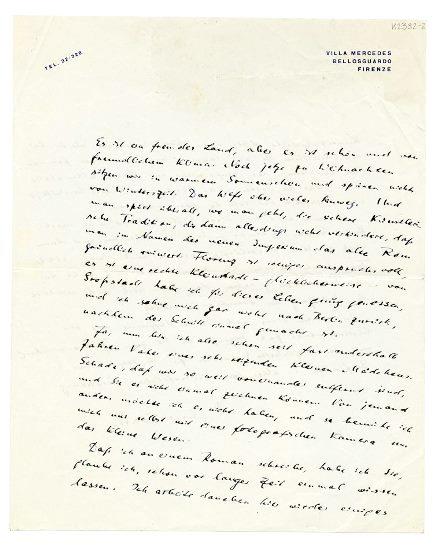 K2332-2
TEL. 22-288
VILLA MERCEDES
BELLOSGUARDO
FIRENZE
Es ist ein fremdes Land, aber es ist schön und von
freundlichem Klima. Noch jetzt zu Weihnachten
sitzen wir in warmem Sonnenschein und spüren nichts
von Winterzeit. Das hilft über vieles hinweg. Und
man spürt überall, wo man geht, die sichere Künstleri-
sche Tradition, die dann allerdings nicht verhindert, daß
man im Namen des neuen Imperium das alte Rom
gründlich ruiniert. Florenz ist weniger anspruchsvoll,
es ist eine rechte Kleinstadt – glücklicherweise – von
Großstadt habe ich für dieses Leben genug genossen,
und ich sehne mich gar nicht nach Berlin zurück,
nachdem der Schnitt einmal gemacht ist.
Ja, nun bin ich also schon seit fast anderthalb
Jahren Vater eines sehr reizenden kleinen Mädchens.
Schade, daß wir so weit voneinander entfernt sind,
und Sie es nicht einmal zeichnen können. Von jemand
anders möchte ich es nicht haben, und so bemühe ich
mich nun selbst mit einer fotografischen Kamera um
das kleine Wesen.
Daß ich an einem Roman schreibe, habe ich Sie,
glaube ich, schon vor langer Zeit einmal wissen
lassen. Ich arbeite daneben hier wieder einiges